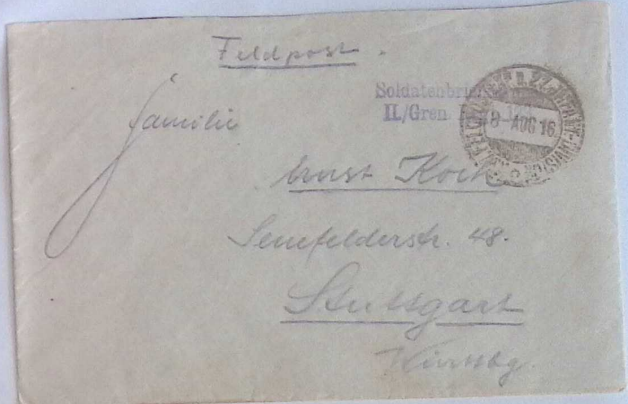 Feldpost.
Soldatenbrief
II./Gren.
8 - AUG 16
Familie
Ernst Koch
Senefelderstr. 48.
Stuttgart